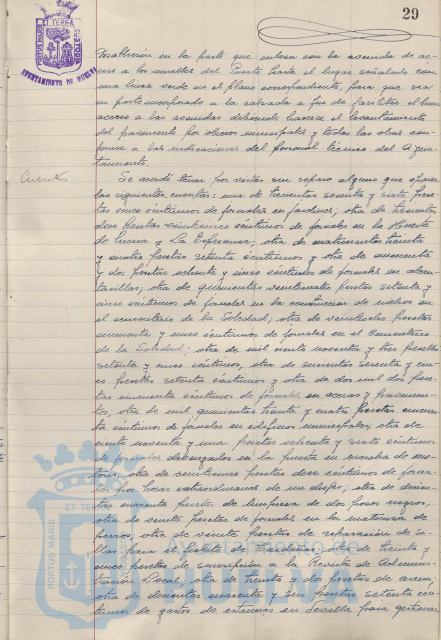 29
PORTUS MARIS ET TERRAE CUSTODIA
AYUNTAMIENTO DE HUELVA
en la parte que enlosa con la avenida de ac-
ceso a los muelles del Puerto hasta el lugar señalado con
una linea verde en el plano correspondiente, para que sea
en parte incorporado a la calzada a fin de facilitar el
acceso a las avenidas debiendo hacerse el levantamiento
del pavimento por obreros municipales y todas las obras con-
forme a las indicaciones del personal técnico del Ayun-
tamiento.
Cuentas
Se acordó tener por vistas sin reparo alguno que oponer
las siguientes cuentas: una de trescientas sesenta y siete pese-
tas once céntimos de jornales en jardines; otra de
dos pesetas veintiseis céntimos de jornales en la Huerta
de y La Esperanza; otra de cuatrocientas treinta
y cuatro pesetas setenta céntimos y otra de
y dos pesetas ochenta y cinco céntimos de jornales en alcan-
tarillas; otra de quinientas veintinueve pesetas setenta y
cinco céntimos de jornales en la construcción de nichos en
el cementerio de la Soledad; otra de veintiocho pesetas
cincuenta y cinco céntimos de jornales en el Cementerio
de la Soledad; otra de mil ciento noventa y tres pesetas
setenta y cinco céntimos, otra de seiscientas sesenta y
pesetas setenta céntimos y otra de dos mil dos pese-
tas cincuenta céntimos de jornales en aceras y pavimen-
tos, otra de mil quinientas treinta y cuatro pesetas
céntimos de jornales en edificios municipales; otra de
ciento noventa y una pesetas ochenta y siete céntimos
de jornales devengados en la puesta en marcha de mo-
tores; otra de veintinueve pesetas doce céntimos de jorna-
les por horas extraordinarias de un chofer; otra de
cuarenta pesetas de limpieza de dos pozos negros;
otra de veinte pesetas de jornales en la matanza de
perros; otra de veinte pesetas de reparación de si-
llas para el fielato de Cardeñas; otra de treinta y
cinco pesetas de suscripción a la Revista de Adminis-
tración Local; otra de treinta y dos pesetas de arena;
otra de doscientas cuarenta y seis pesetas setenta cén-
timos de gastos de estancias en Sevilla para gestionar
PORTUS MARIS ET TERRAE CUSTODIA
Ayuntamiento de
HUELVA